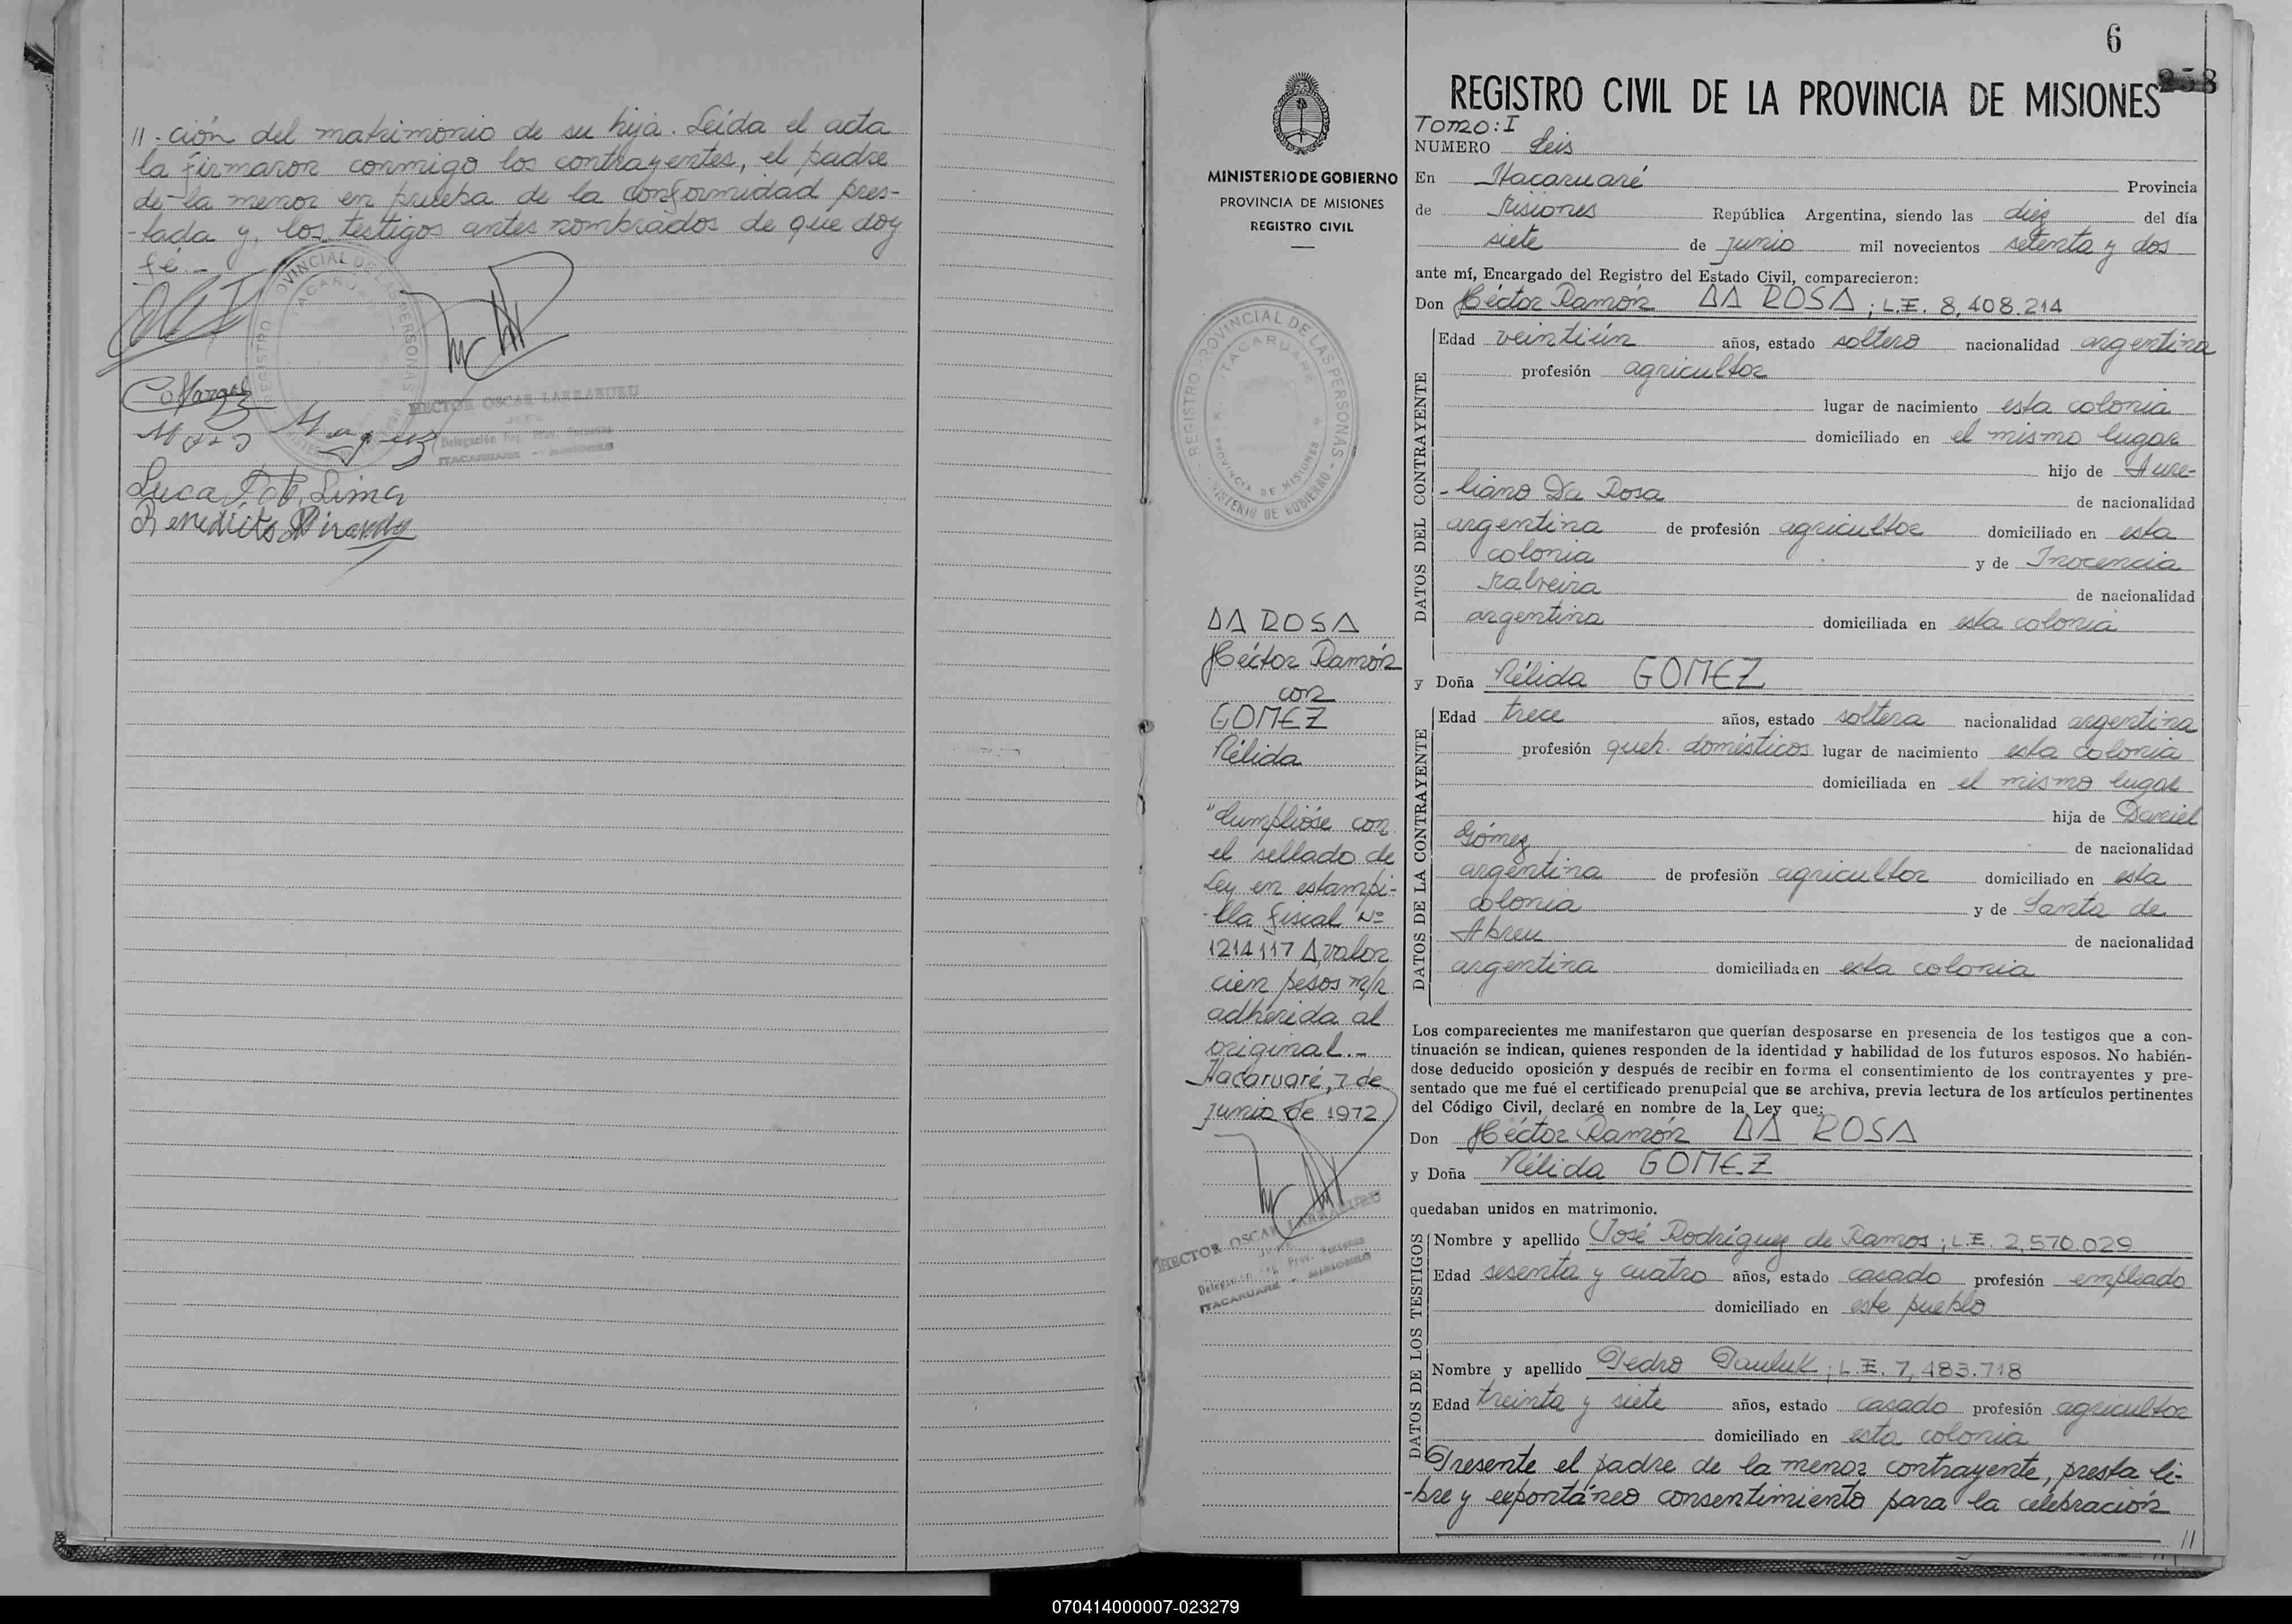 11-ción del matrimonio de su hija. Leida el acta
la firmaron conmigo los contrayentes, el padre
de la menor en prueba de la conformidad pres-
-tada y, los testigos antes nombrados de que doy
fé.-
HECTOR OSCAR LARRABURU
JEFE
Delegación Reg. Prov. Personas
ITACARUARE - MISIONES
Luca
Lima
Benedicto
MINISTERIO DE GOBIERNO
PROVINCIA DE MISIONES
REGISTRO CIVIL
REGISTRO PROVINCIAL DE LAS PERSONAS - MINISTERIO DE GOBIERNO -
ITACARUARE
PROVINCIA DE MISIONES
DA ROSA
Héctor Ramón
con
GOMEZ
Nélida
"Cumplióse con
el sellado de
Ley en estampi-
-lla fiscal Nº
1214117 A, valor
cien pesos m/n
adherida al
original.-
Itacaruaré, 7 de
junio de 1972
HECTOR OSCAR LARRABURU
JEFE
Delegación Reg. Prov. Personas
ITACARUARE - MISIONES
6
258
REGISTRO CIVIL DE LA PROVINCIA DE MISIONES
TOMO: I
NUMERO Seis
En Itacaruaré Provincia
de Misiones República Argentina, siendo las diez del día
siete de junio mil novecientos setenta y dos
ante mí, Encargado del Registro del Estado Civil, comparecieron:
Don Héctor Ramón DA ROSA; L.E. 8,408.214
DATOS DEL CONTRAYENTE
Edad veintiún años, estado soltero nacionalidad argentina
profesión agricultor
lugar de nacimiento esta colonia
domiciliado en el mismo lugar
hijo de Aure-
-liano Da Rosa de nacionalidad
argentina de profesión agricultor domiciliado en esta
colonia y de Inocencia
Malveira de nacionalidad
argentina domiciliada en esta colonia
y Doña Nélida GOMEZ
DATOS DE LA CONTRAYENTE
Edad trece años, estado soltera nacionalidad argentina
profesión queh. domésticos lugar de nacimiento esta colonia
domiciliada en el mismo lugar
hija de Daniel
Gómez de nacionalidad
argentina de profesión agricultor domiciliado en esta
colonia y de Santa de
Abreu de nacionalidad
argentina domiciliada en esta colonia
Los comparecientes me manifestaron que querían desposarse en presencia de los testigos que a con-
tinuación se indican, quienes responden de la identidad y habilidad de los futuros esposos. No habién-
dose deducido oposición y después de recibir en forma el consentimiento de los contrayentes y pre-
sentado que me fué el certificado prenupcial que se archiva, previa lectura de los artículos pertinentes
del Código Civil, declaré en nombre de la Ley que:
Don Héctor Ramón DA ROSA
y Doña Nélida GOMEZ
quedaban unidos en matrimonio.
DATOS DE LOS TESTIGOS
Nombre y apellido José Rodríguez de Ramos; L.E. 2,570.029
Edad sesenta y cuatro años, estado casado profesión empleado
domiciliado en este pueblo
Nombre y apellido Pedro Pauluk; L.E. 7,483.718
Edad treinta y siete años, estado casado profesión agricultor
domiciliado en esta colonia
Presente el padre de la menor contrayente, presta li-
-bre y expontáneo consentimiento para la celebración
11
070414000007-023279